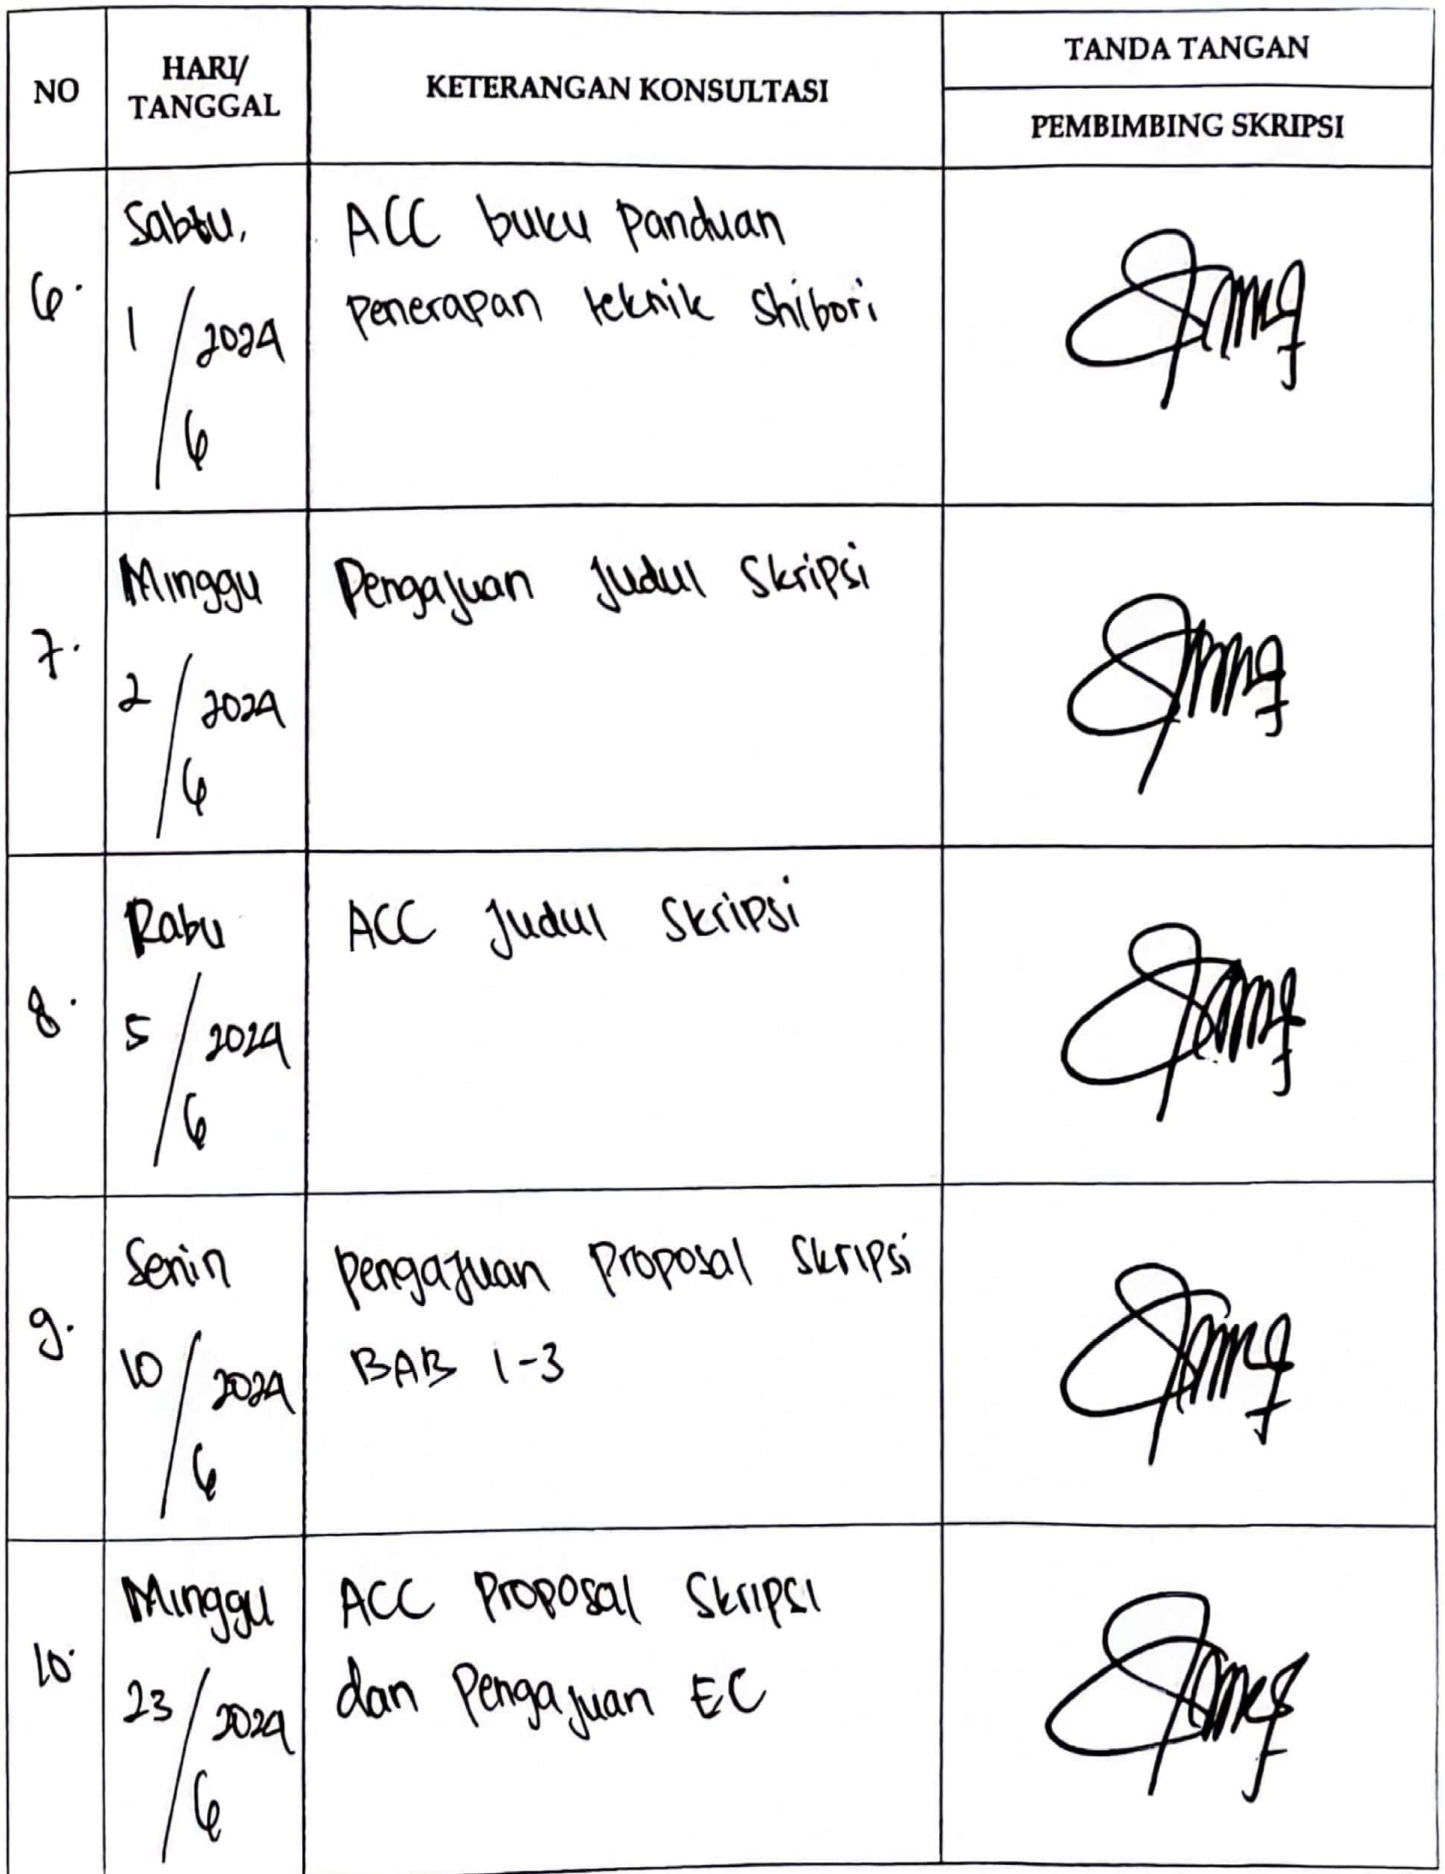 NO
HARI/
TANGGAL
KETERANGAN KONSULTASI
TANDA TANGAN
PEMBIMBING SKRIPSI
6.
Sabtu,
1/2024
6
ACC buku Panduan
Penerapan teknik Shibori
7.
Minggu
2/2024
6
Pengajuan Judul Skripsi
8.
Rabu
5/2024
6
ACC Judul Skripsi
9.
Senin
10/2024
6
pengajuan Proposal Skripsi
BAB 1-3
10.
Minggu
23/2024
6
ACC Proposal Skripsi
dan Pengajuan EC